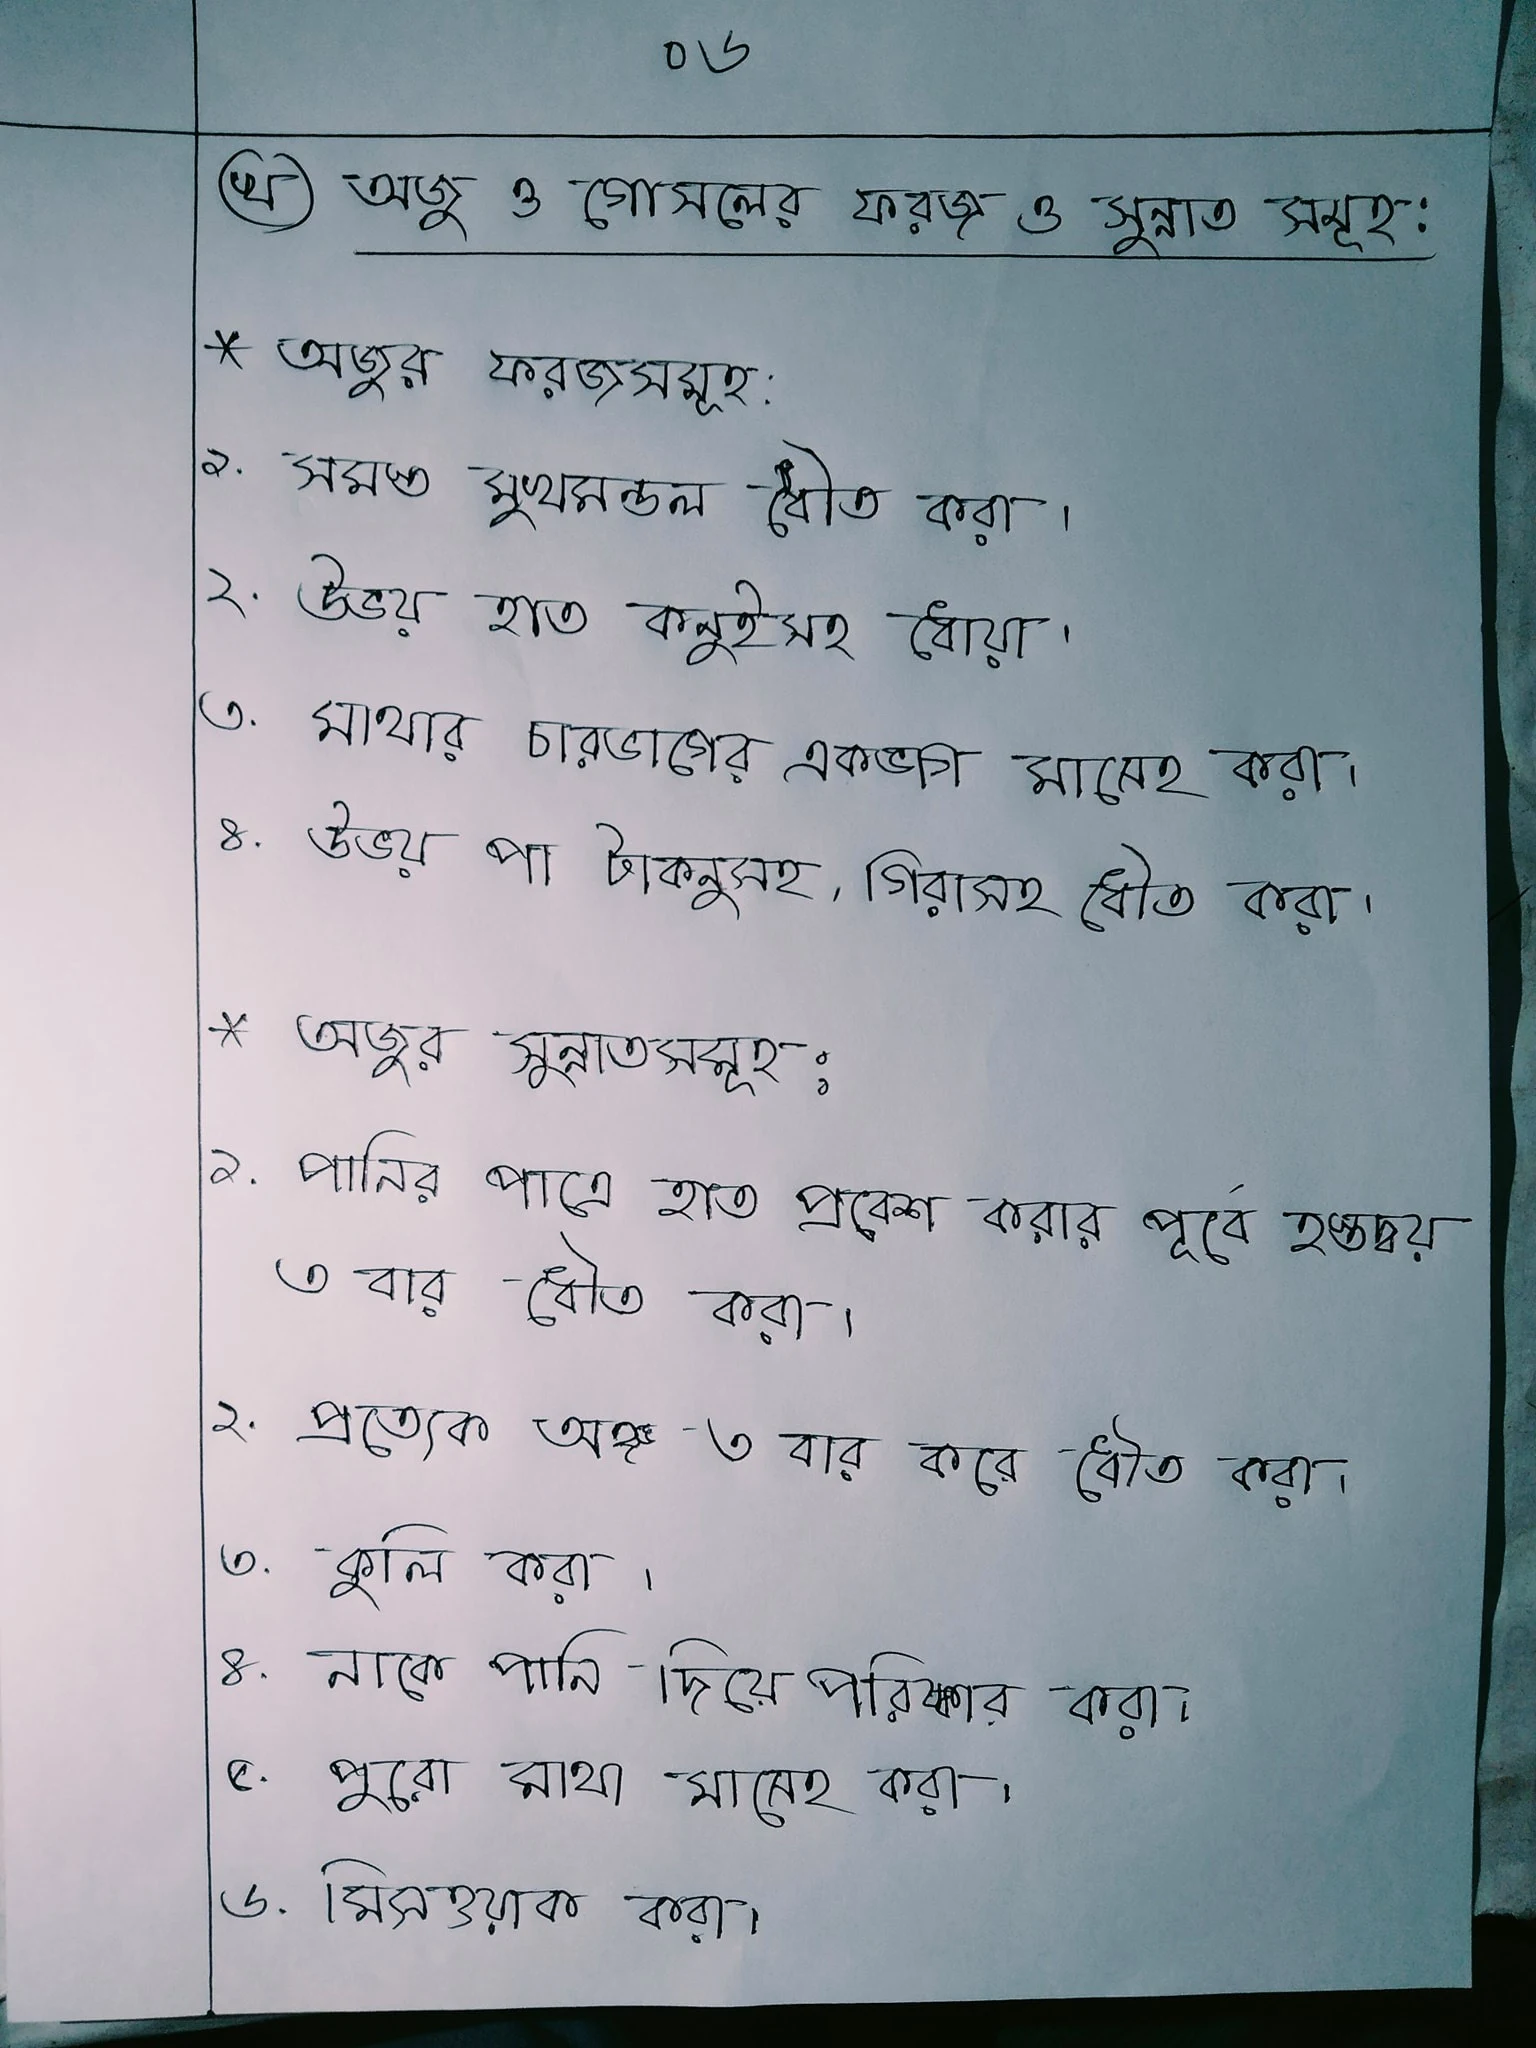 ০৬
(খ) অজু ও গোসলের ফরজ ও সুন্নাত সমূহ:
* অজুর ফরজসমূহ:
১. সমস্ত মুখমন্ডল ধৌত করা।
২. উভয় হাত কনুইসহ ধোয়া।
৩. মাথার চারভাগের একভাগ মাসেহ করা।
৪. উভয় পা টাকনুসহ, গিরাসহ ধৌত করা।
* অজুর সুন্নাতসমূহ:
১. পানির পাত্রে হাত প্রবেশ করার পূর্বে হস্তদ্বয়
৩ বার ধৌত করা।
২. প্রত্যেক অঙ্গ ৩ বার করে ধৌত করা।
৩. কুলি করা।
৪. নাকে পানি দিয়ে পরিষ্কার করা।
৫. পুরো মাথা মাসেহ করা।
৬. মিসওয়াক করা।